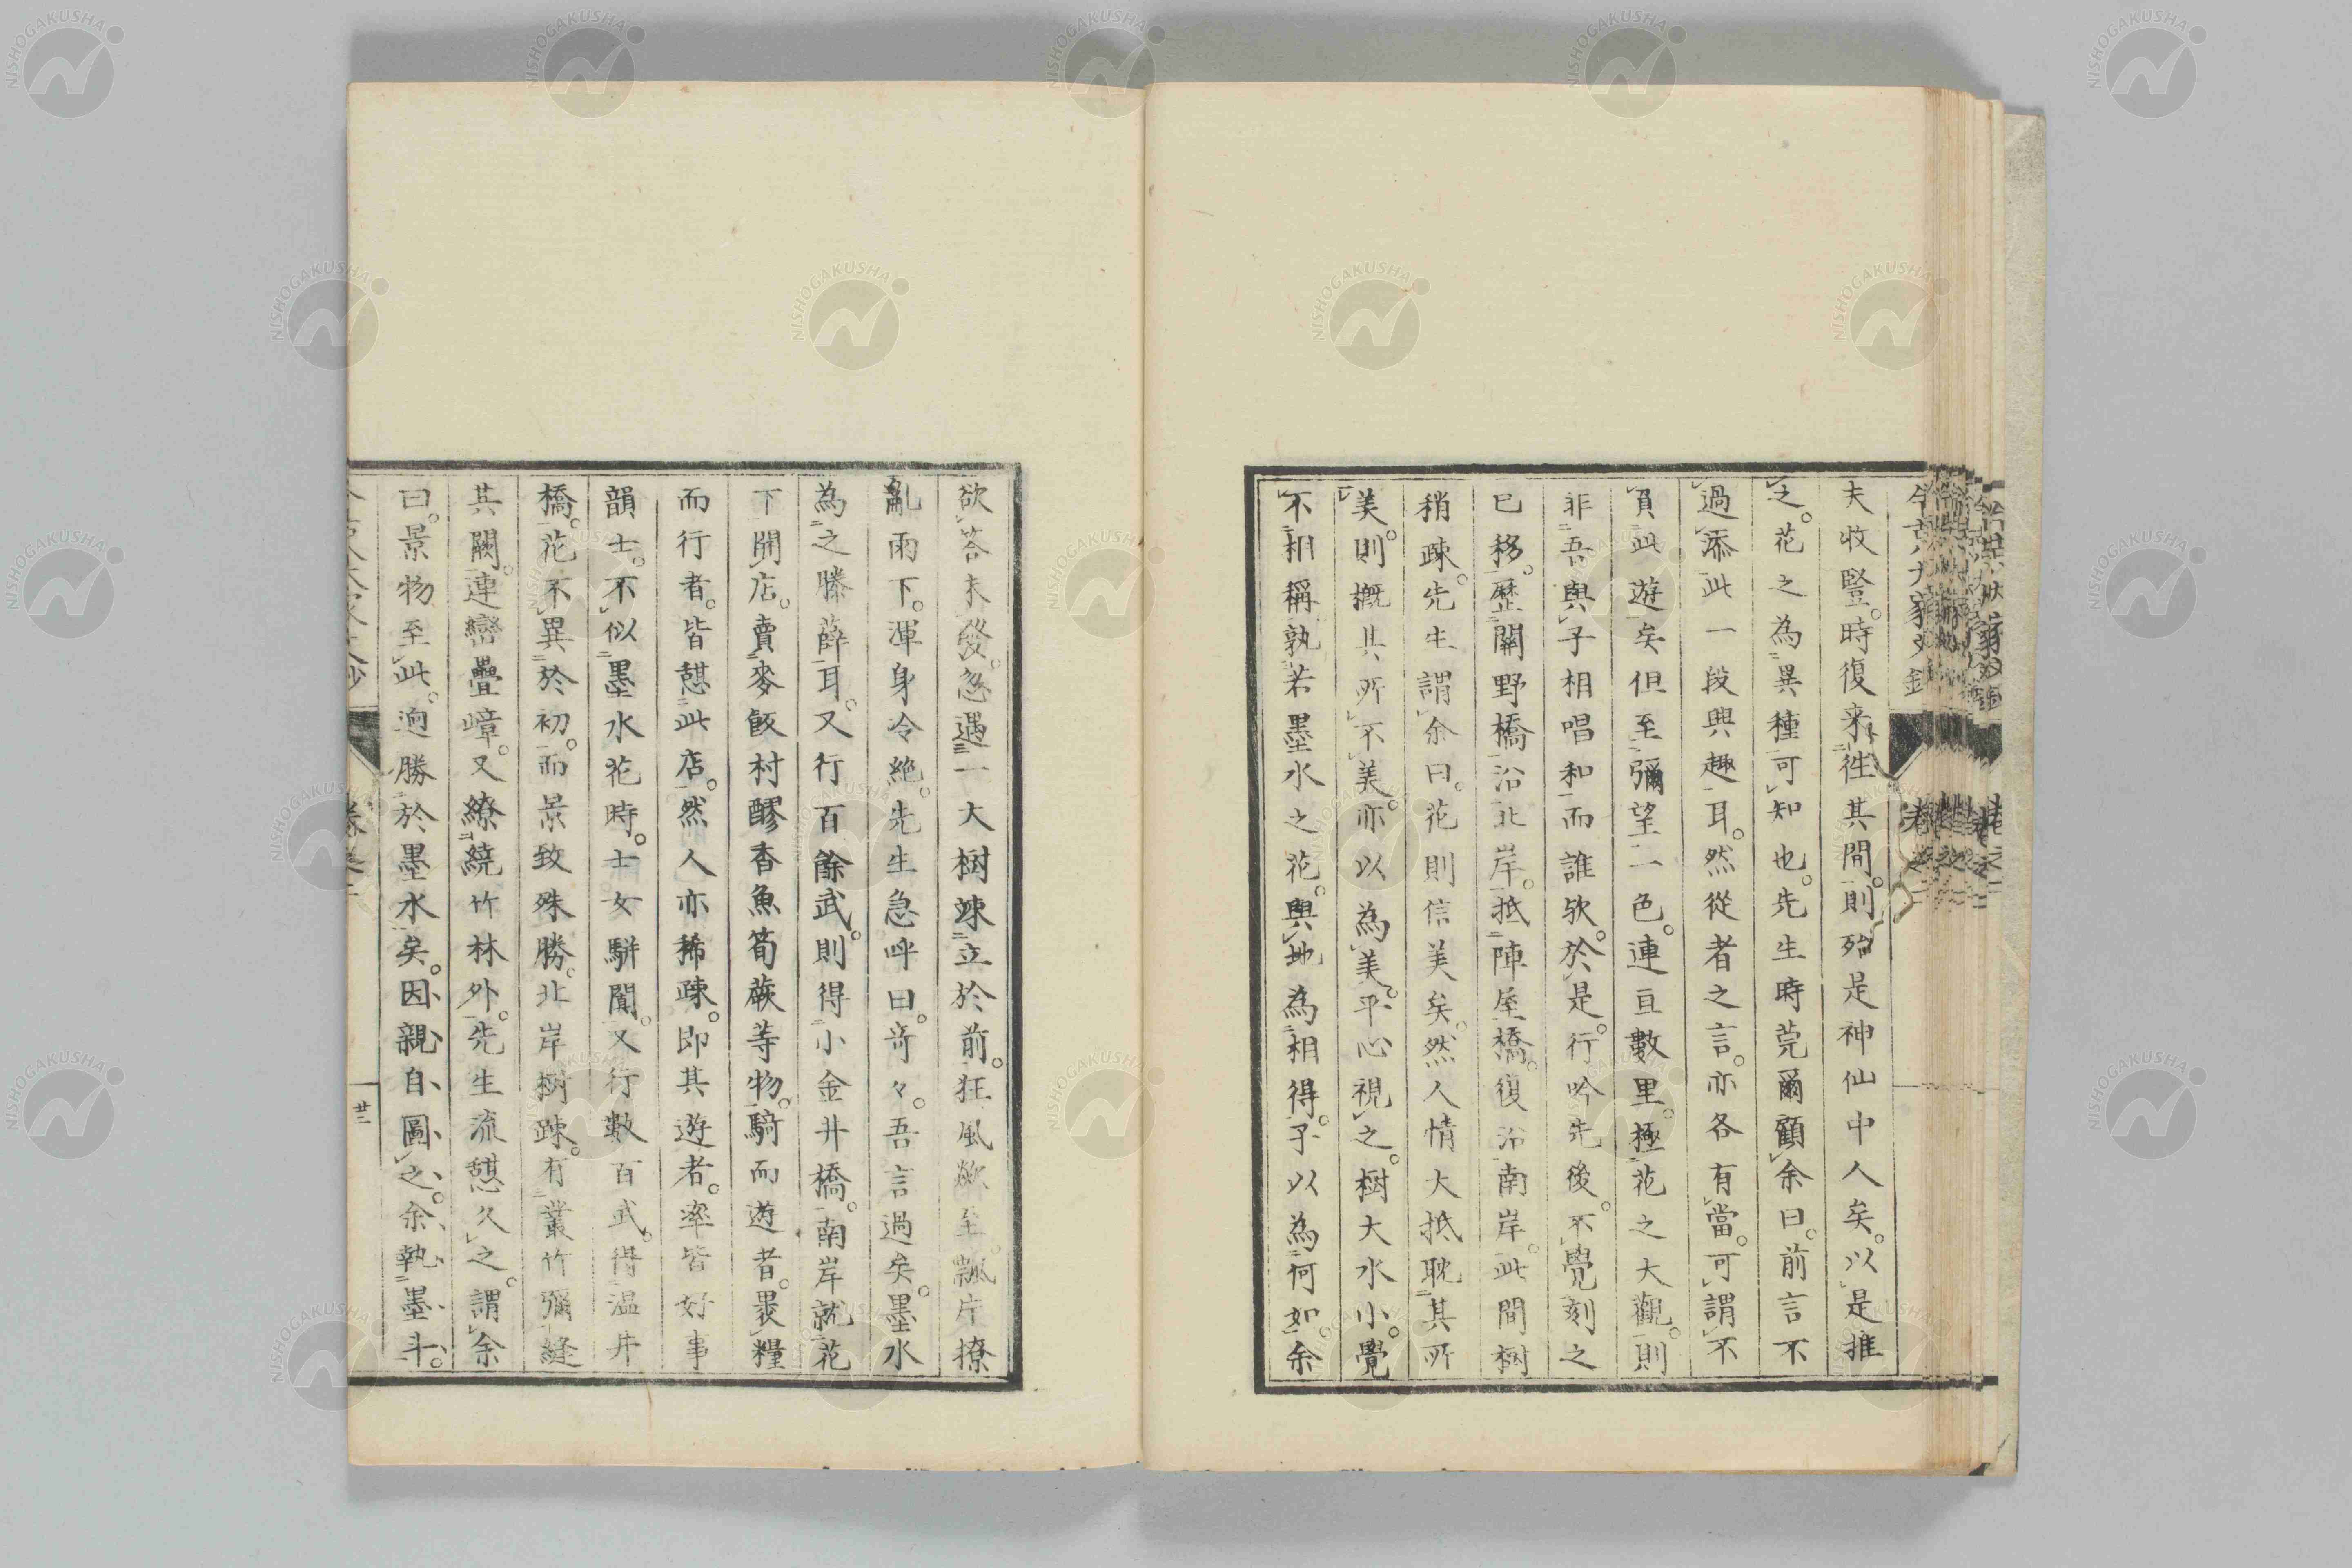 夫收豎。時復来往其間。則殆是神仙中人矣。以是推
之。花之為異種可知也。先生時莞爾顧余曰。前言不
過添此一段興趣耳。然從者之言。亦各有當。可謂不
負此遊矣但至彌望一色。連亘數里。極花之大觀。則
非吾與子相唱和而誰欤。於是。行吟先後。不覺刻之
已移。歷關野橋沿北岸。抵陣屋橋。復沿南岸。此間樹
稍疎。先生謂余曰。花則信美矣。然人情大抵耽其所
美。則概其所不美。亦以為美。平心視之。樹大水小。覺
不相稱孰若墨水之花。與地為相得。子以為何如余
欲答未發。忽遇一大樹竦立於前。狂風欻至。飄片撩
亂雨下。渾身冷絶。先生急呼曰。竒々。吾言過矣。墨水
為之滕薛耳。又行百餘武。則得小金井橋。南岸就花
下開店。賣麥飯村醪香魚筍蕨等物。騎而遊者。褁糧
而行者。皆憩此店。然人亦稀疎。即其遊者。率皆好事
韻士。不似墨水花時。士女駢闐。又行數百武。得温井
橋。花不異於初。而景致殊勝。北岸樹疎。有叢竹彌縫
其闕。連巒疊嶂。又繚繞竹林外。先生流憩久之。謂余
曰。景物至此。逈勝於墨水矣。因親自圖之。余執墨斗。
廿二
NISHOGAKUSHA